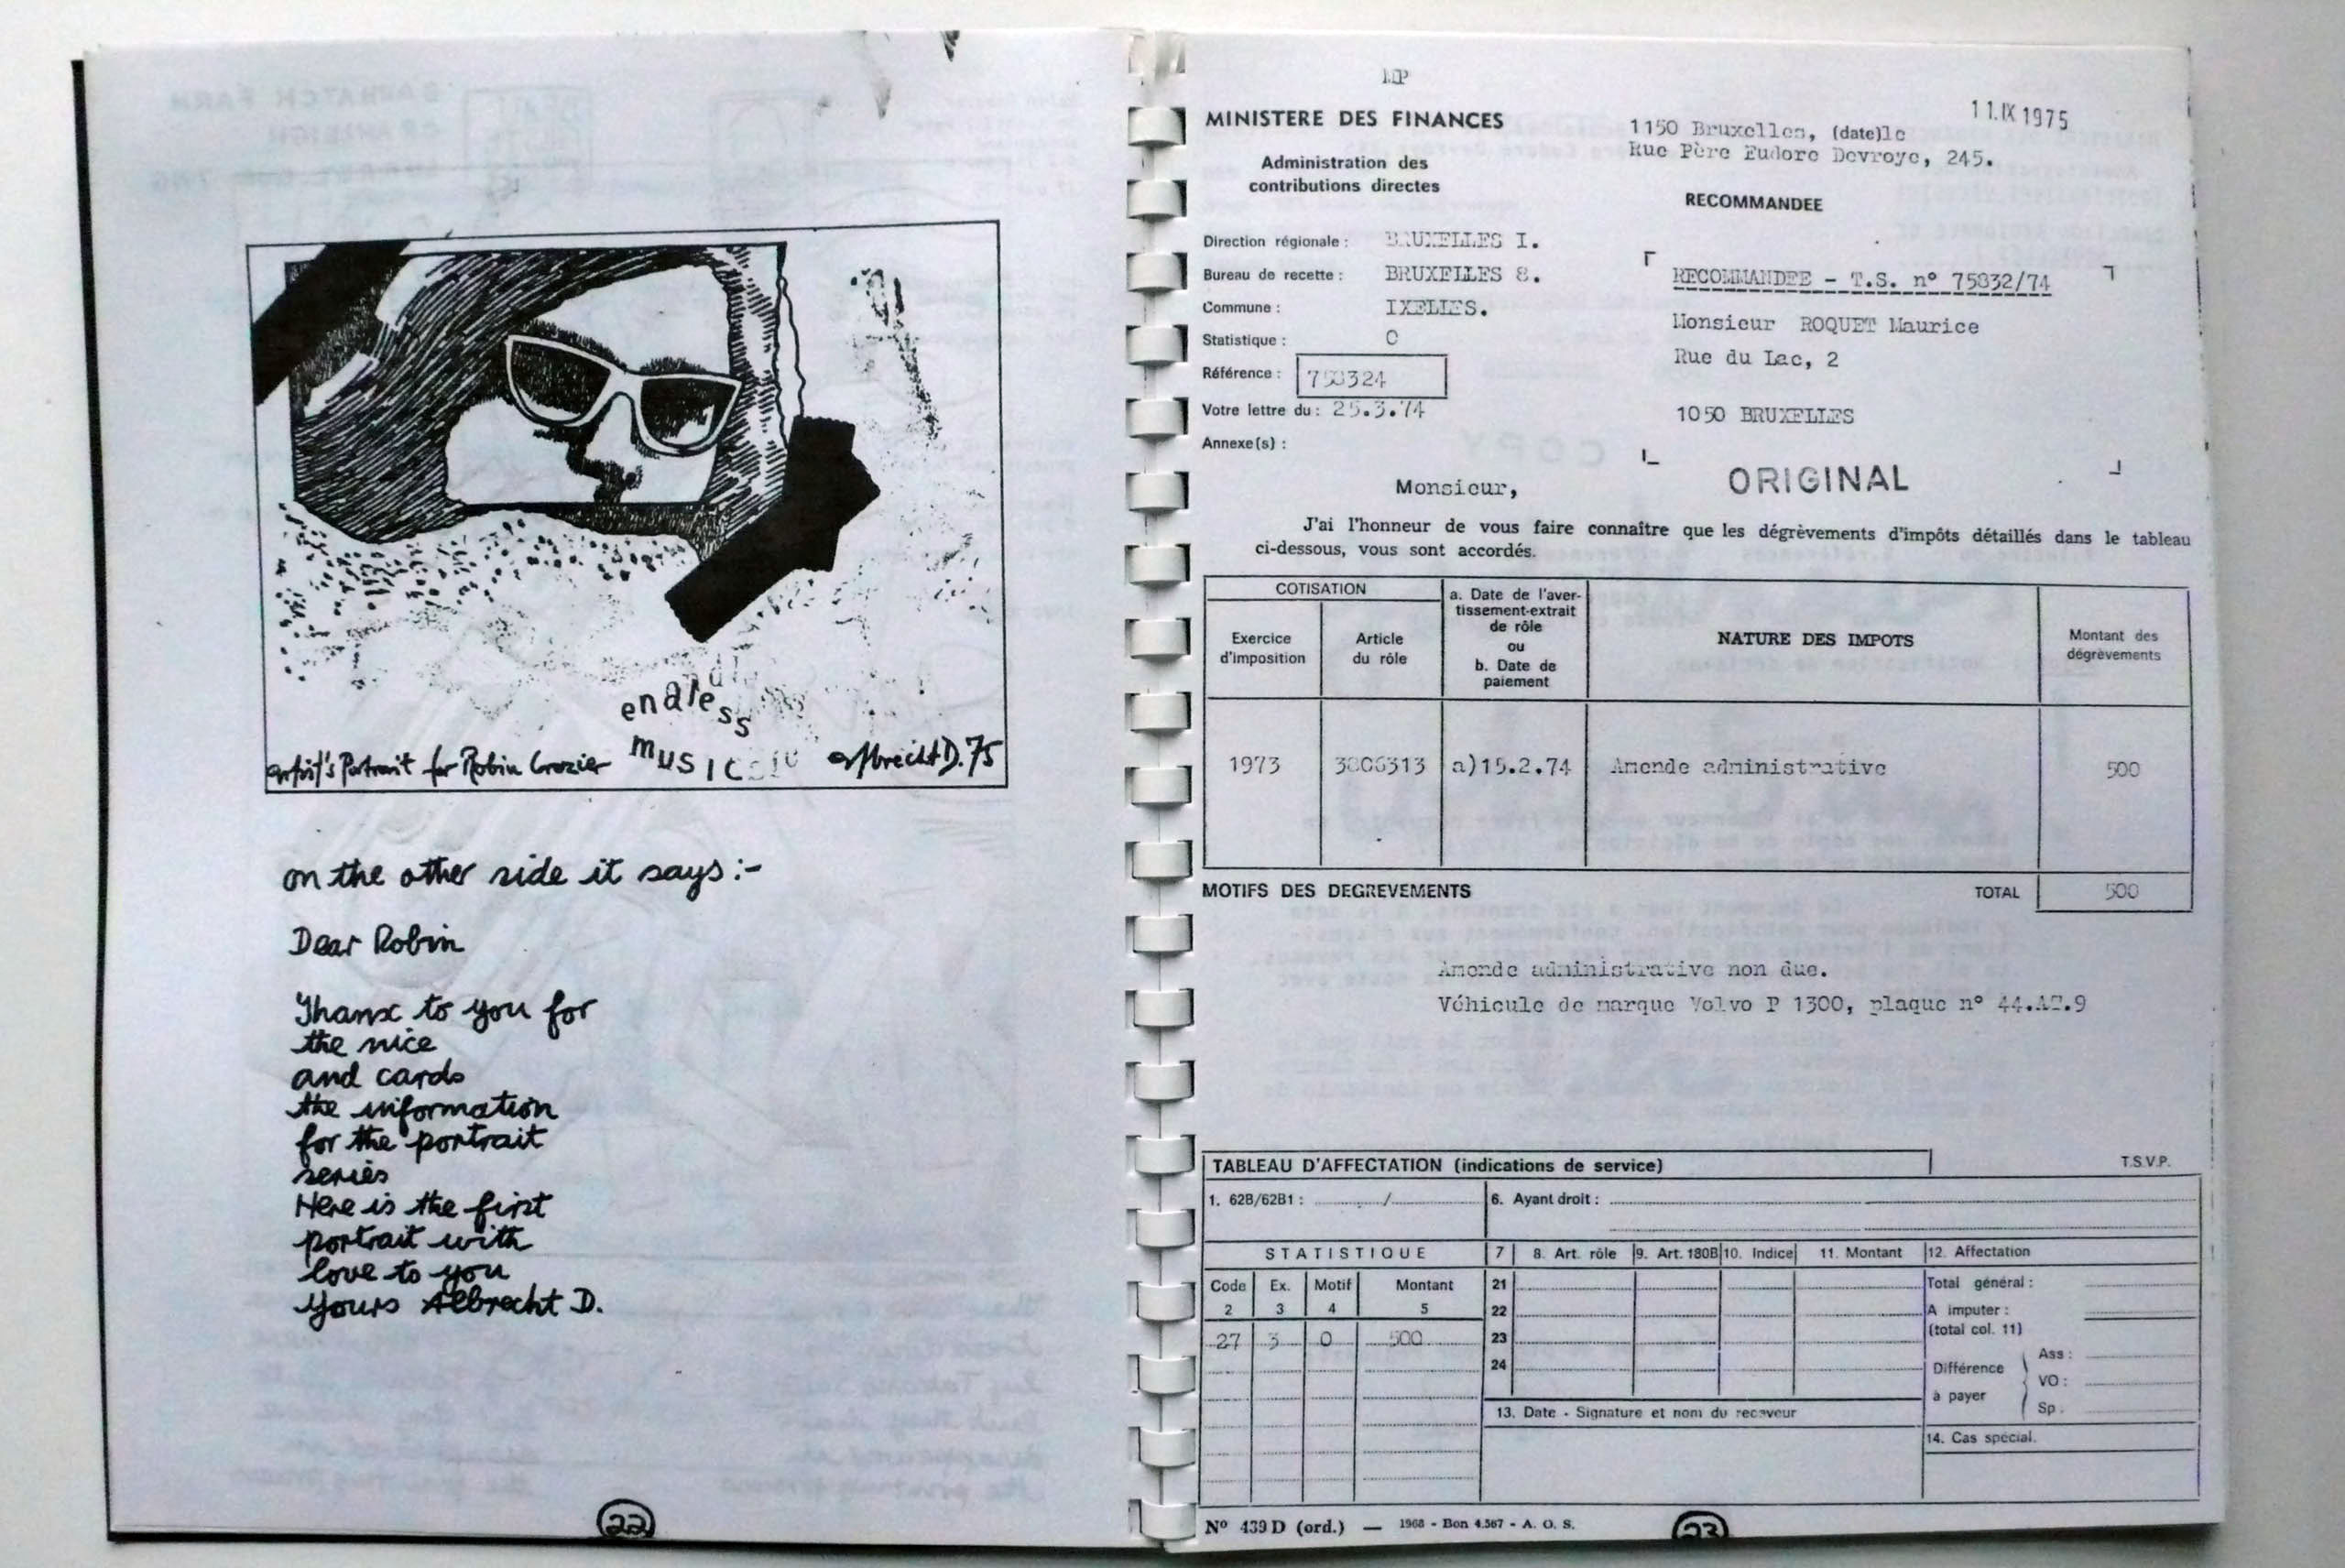 endless
music
artist's Portrait for Robin Crozier
albrecht D. 75
on the other side it says :-
Dear Robin
Thanx to you for
the nice
and cards
the information
for the portrait
series
Here is the first
portrait with
love to you
yours Albrecht D.
22
MINISTERE DES FINANCES
Administration des
contributions directes
11.IX 1975
1150 Bruxelles, (date)le
Rue Père Eudore Devroye, 245.
RECOMMANDEE
Direction régionale : BRUXELLES I.
Bureau de recette : BRUXELLES 8.
Commune : IXELLES.
Statistique :
Référence : 758324
Votre lettre du : 25.3.74
Annexe(s) :
RECOMMANDEE - T.S. n° 75832/74
Monsieur ROQUET Maurice
Rue du Lac, 2
1050 BRUXELLES
ORIGINAL
Monsieur,
J'ai l'honneur de vous faire connaître que les dégrèvements d'impôts détaillés dans le tableau
ci-dessous, vous sont accordés.
COTISATION
Exercice
d'imposition
Article
du rôle
a. Date de l'aver-
tissement-extrait
de rôle
ou
b. Date de
paiement
NATURE DES IMPOTS
Montant des
dégrèvements
1973 3806313 a)15.2.74 Amende administrative 500
MOTIFS DES DEGREVEMENTS TOTAL 500
Amende administrative non due.
Véhicule de marque Volvo P 1300, plaque n°
TABLEAU D'AFFECTATION (indications de service) T.S.V.P.
1. 62B/62B1 : / 6. Ayant droit :
STATISTIQUE 7 8. Art. rôle 9. Art. 180B 10. Indice 11. Montant 12. Affectation
Code Ex. Motif Montant
2 3 4 5
27 3 0 500
21
22
23
24
Total général :
A imputer :
(total col. 11)
Différence
à payer
Ass :
VO :
Sp.
13. Date - Signature et nom du receveur
14. Cas spécial.
N° 439 D (ord.) — 1968 - Bon 4.567 - A. O. S.
23